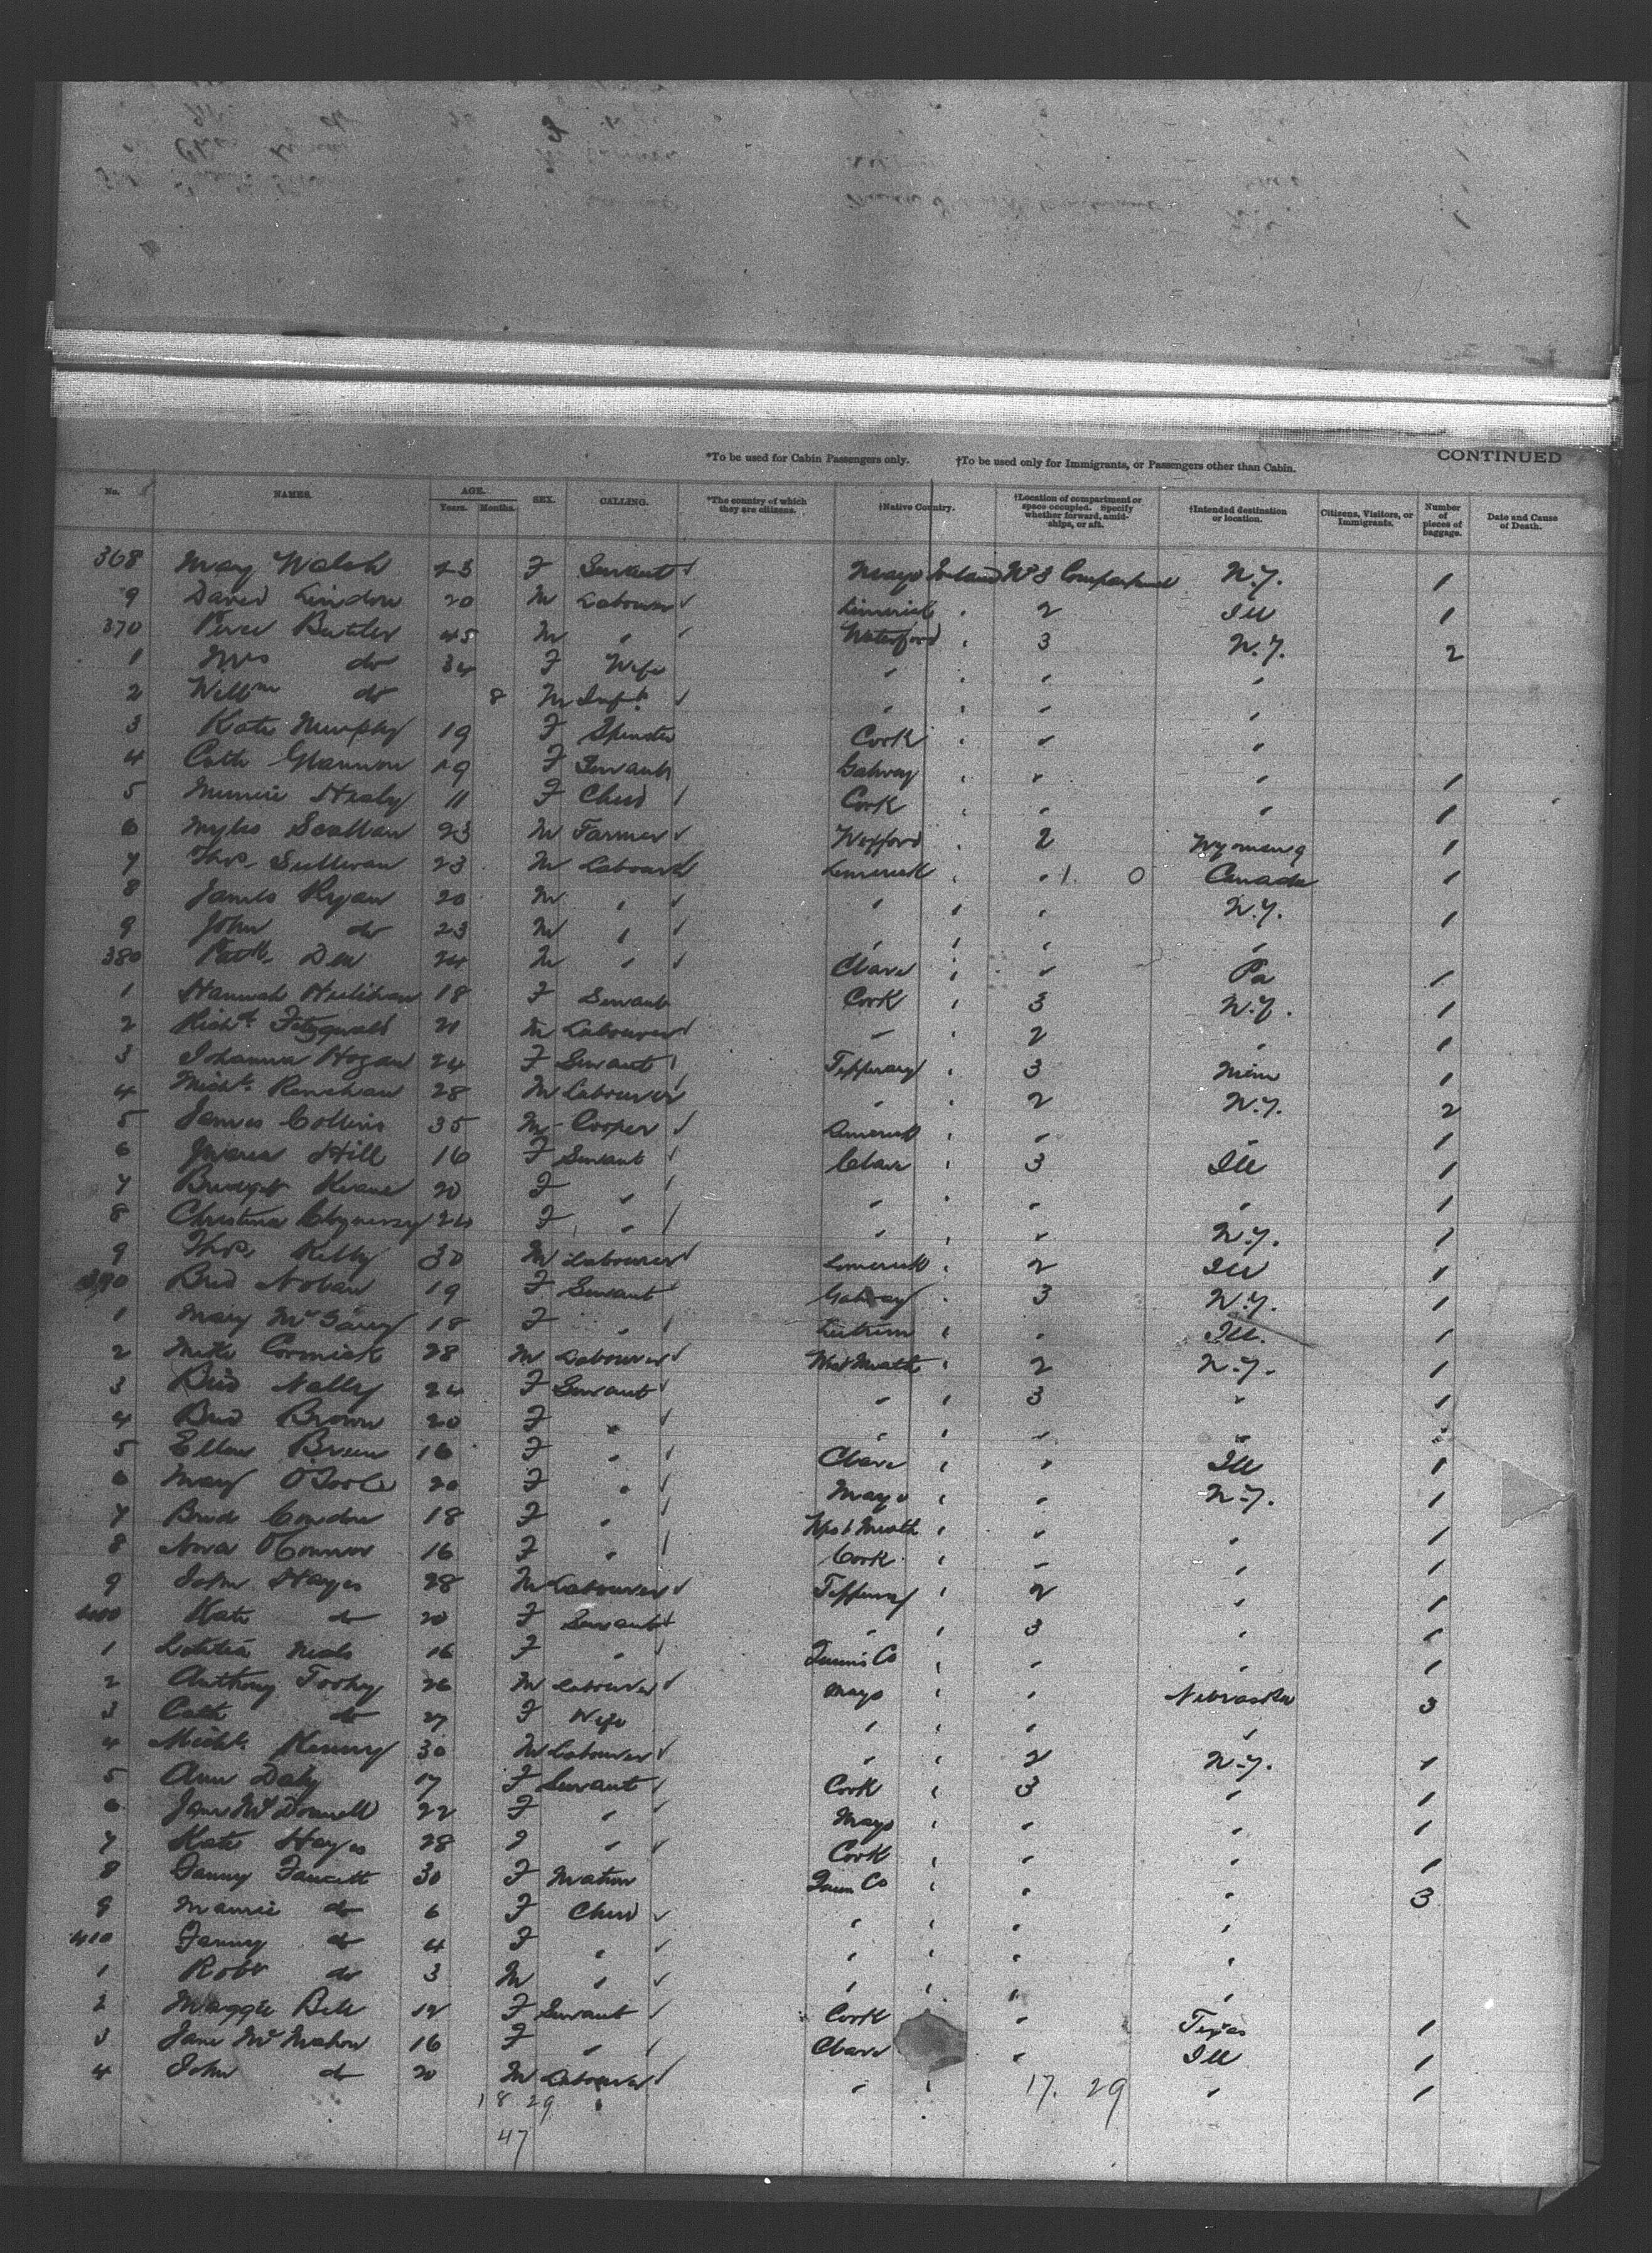 *To be used for Cabin Passengers only. †To be used only for Immigrants, or Passengers other than Cabin. CONTINUED
No. NAMES. AGE. Years. Months. SEX. CALLING. *The country of which they are citizens. †Native Country. †Location of compartment or space occupied. Specify whether forward, amidships, or aft. †Intended destination or location. Citizens, Visitors, or Immigrants. Number of pieces of baggage. Date and Cause of Death.
368 Mary Walsh 23 F Servant Mayo Ireland No 3 Compartment N.Y. 1
9 David 20 M Labourer Limerick 2 Ill 1
370 Butler 45 M " Waterford 3 N.Y. 2
1 Mrs do 34 F Wife " " "
2 Willm do 8 M Inft " " "
3 Kate Murphy 19 F Spinster Cork " "
4 Cath Glannon 19 F Servant Galway " " 1
5 Minnie Healy 11 F Child Cork " " 1
6 Myles Scallan 23 M Farmer Wexford 2 Wyoming 1
7 Thos Sullivan 23 M Labourer Limerick " 1. 0 Canada 1
8 James Ryan 20 M " " " N.Y. 1
9 John do 23 M " " " "
380 Patk 24 M " Clare " Pa 1
1 Hannah 18 F Servant Cork 3 N.Y. 1
2 Richd Fitzgerald 21 M Labourer " 2 " 1
3 Johanna Hogan 24 F Servant Tipperary 3 1
4 Michl 28 M Labourer " 2 N.Y. 2
5 James Collins 35 M Cooper Limerick " " 1
6 Maria Hill 16 F Servant Clare 3 Ill 1
7 Bridget Keane 20 F " " " " 1
8 Christina F " " " N.Y. 1
9 Thos Kelly 30 M Labourer Limerick 2 Ill 1
390 Brid Nolan 19 F Servant Galway 3 N.Y. 1
1 Mary 18 F " Leitrim " Ill. 1
2 Mike Cormick 28 M Labourer West Meath 2 N.Y. 1
3 Brid Nally 24 F Servant " 3 " 1
4 Brid Brown 20 F " " " "
5 Ellen 16 F " Clare " Ill 1
6 Mary O'Toole 20 F " Mayo " N.Y. 1
7 Brid 18 F " West Meath " " 1
8 Nora O'Connor 16 F " Cork " " 1
9 John Hayes 28 M Labourer Tipperary 2 " 1
400 Kate do 20 F Servant " 3 " 1
1 Letitia 16 F " Co " " 1
2 Anthony Toohy 26 M Labourer Mayo " Nebraska 3
3 Cath do 27 F Wife " " "
4 Michl Kenny 30 M Labourer " 2 N.Y. 1
5 Ann Daly 17 F Servant Cork 3 " 1
6 Jane McDonnell 22 F " Mayo " " 1
7 Kate Hayes 28 F " Cork " " 1
8 Fanny Fawcett 30 F Matron Co " " 3
9 do 6 F Child " " "
410 Fanny do 4 F " " " "
1 Robt do 3 M " " " "
2 Maggie Bell F Servant Cork " Texas 1
3 Jane McMahon 16 F " Clare " Ill 1
4 John do 20 M Labourer " " 1
18 29 17. 29
47